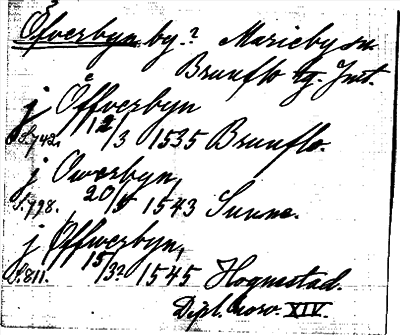 Öfverbyn by.? Marieby sn.
Brunflo tg. Jmt.
j Öffverbyn
S. 742. 12/3 1535 Brunflo.
j Owerbyn,
S. 798. 20/5 1543 Sunne.
j Øffwerbyn,
S. 811. 15/3? 1545 Hognestad.
Dipl. norv. XIV.